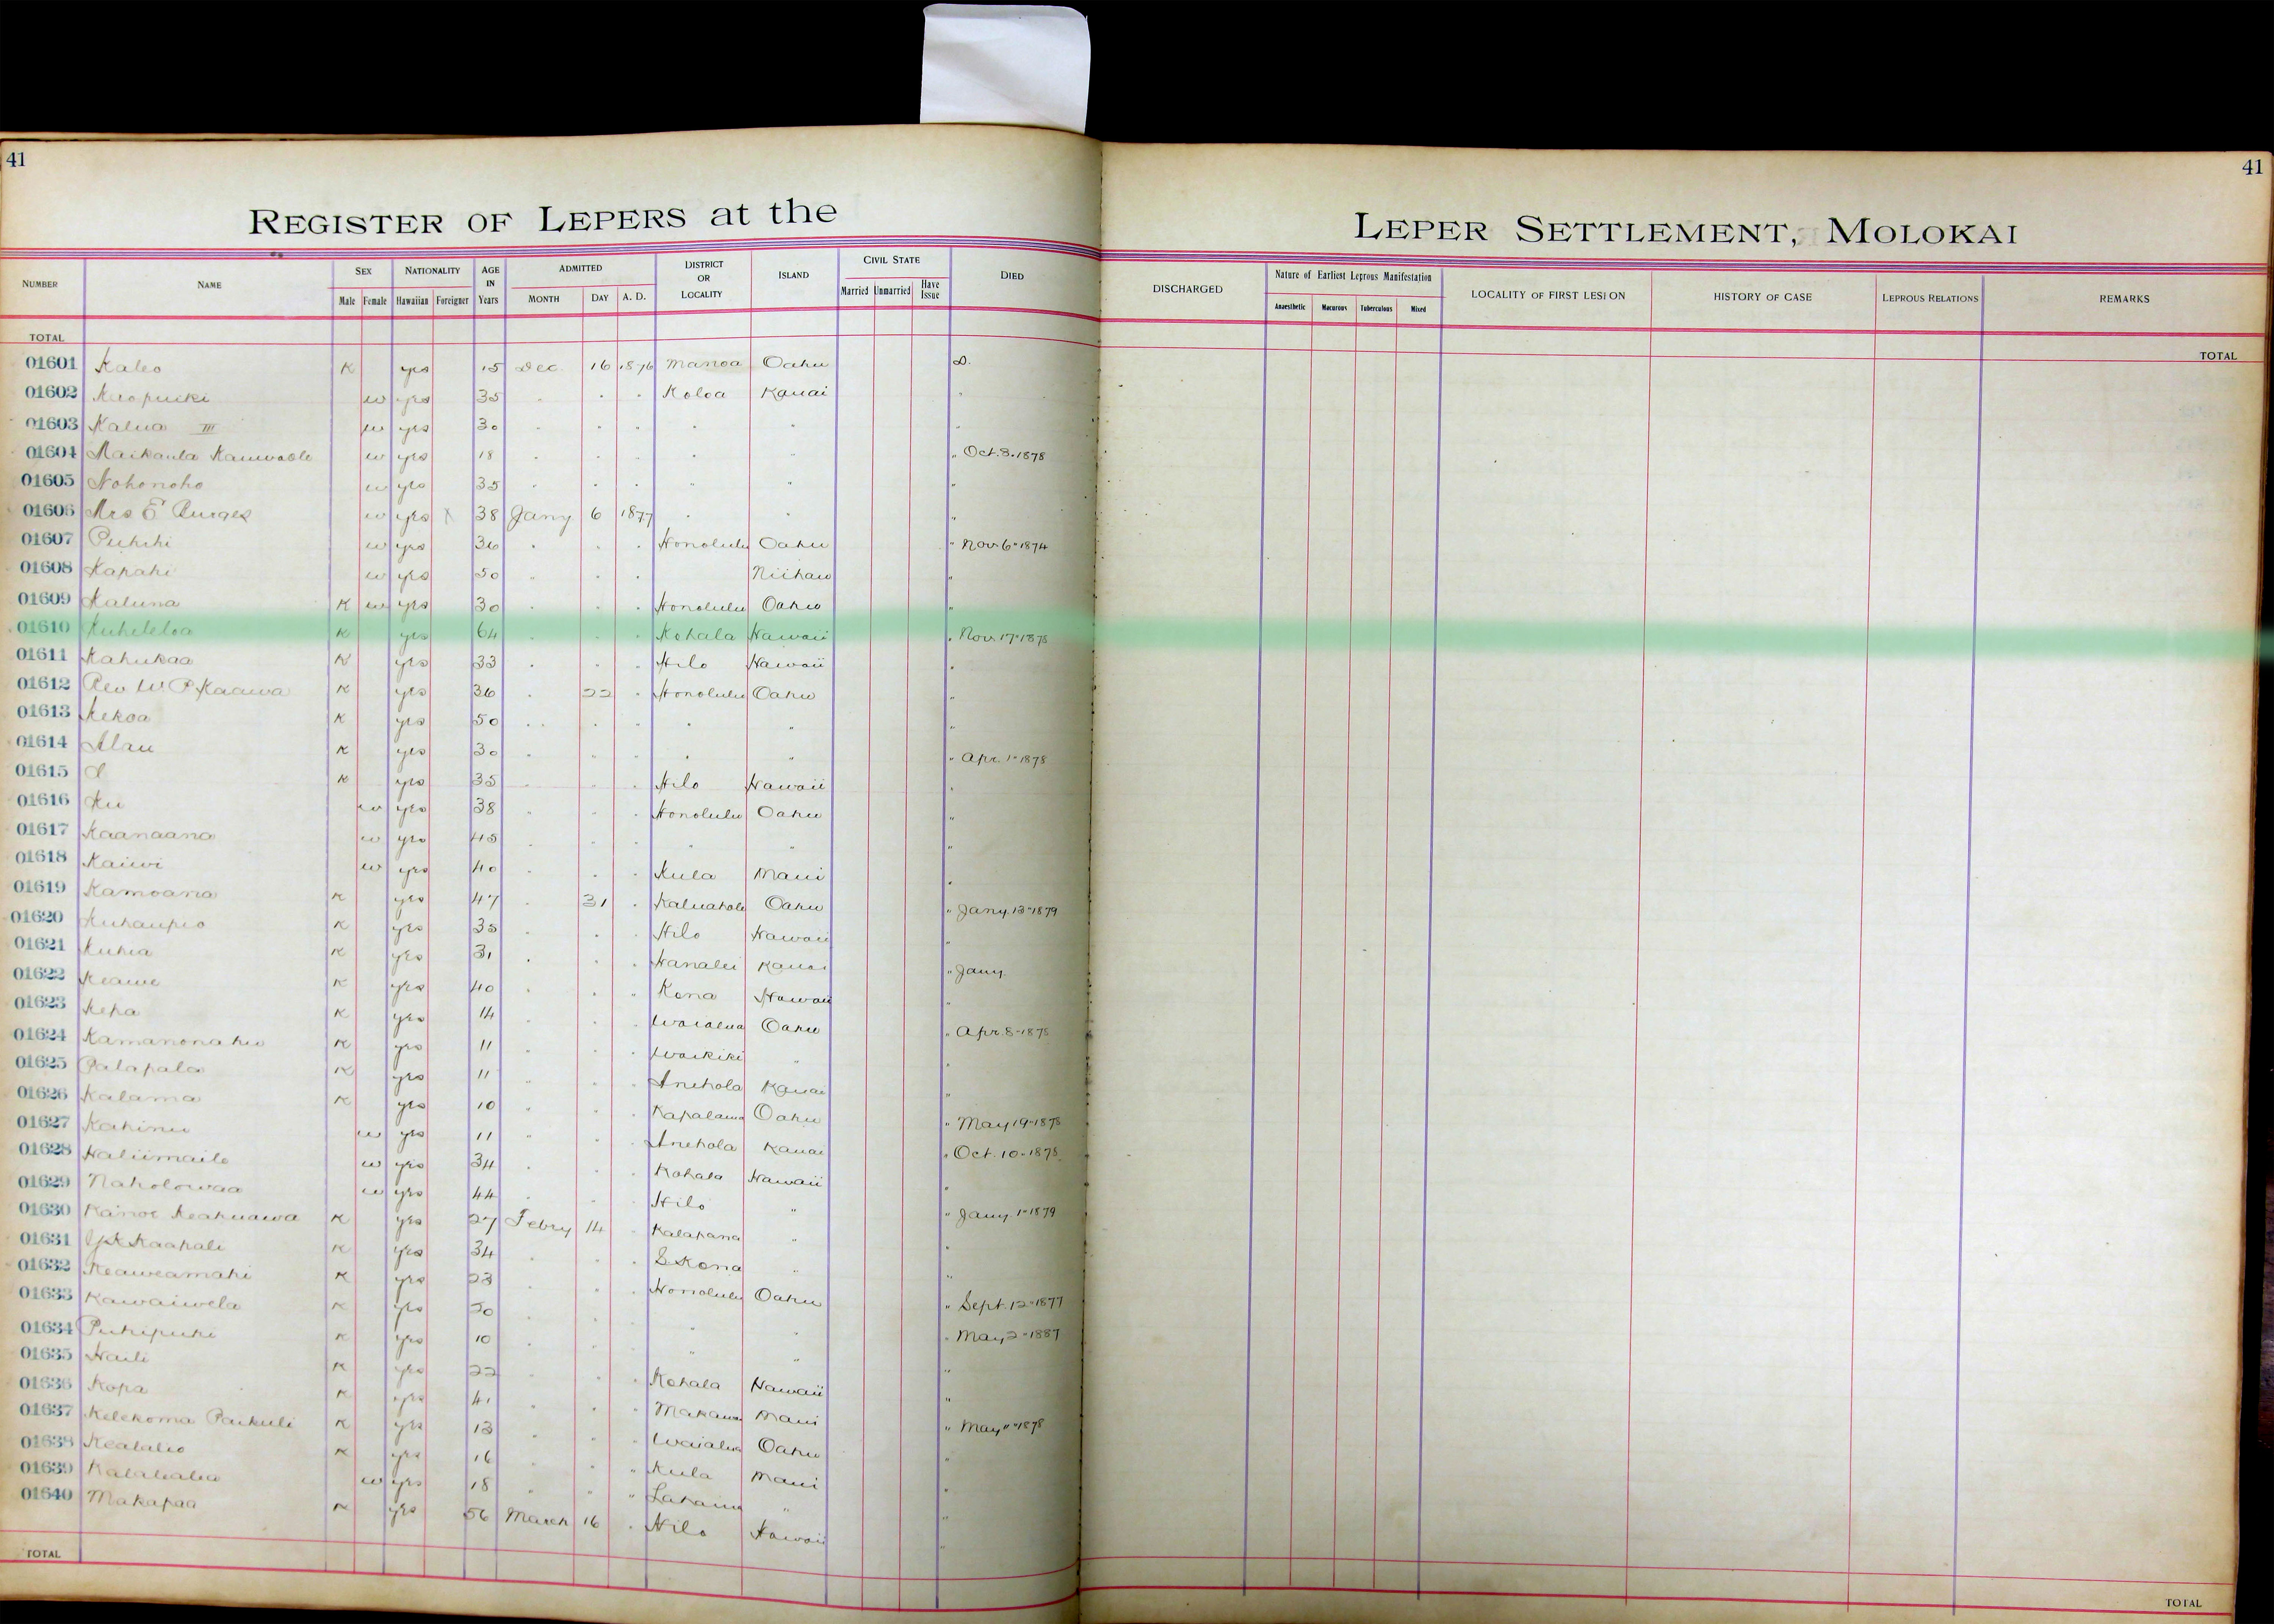 41
41
REGISTER OF LEPERS at the
LEPER SETTLEMENT, MOLOKAI
NUMBER NAME SEX Male Female NATIONALITY Hawaiian Foreigner AGE IN Years ADMITTED MONTH DAY A. D. DISTRICT OR LOCALITY ISLAND CIVIL STATE Married Unmarried Have Issue DIED DISCHARGED Nature of Earliest Leprous Manifestation Anaesthetic Macurous Tuberculous Mixed LOCALITY OF FIRST LESION HISTORY OF CASE LEPROUS RELATIONS REMARKS
TOTAL TOTAL
01601 Kaleo K yes 15 Dec. 16 1876 Manoa Oahu D.
01602 w yes 35 " " " Koloa Kauai "
01603 Kalua III w yes 30 " " " " " "
01604 Maikaula w yes 18 " " " " " " Oct. 3. 1878
01605 Nohonoho w yes 35 " " " " " "
01606 Mrs E Burges w yes X 38 Jany 6 1877 " " "
01607 Puhihi w yes 36 " " " Honolulu Oahu " Nov 6 - 1874
01608 Kapahi w yes 50 " " " Niihau "
01609 Kaluna K w yes 30 " " " Honolulu Oahu "
01610 Kuheleloa K yes 64 " " " Kohala Hawaii " Nov. 17 - 1878
01611 Kahukaa K yes 33 " " " Hilo Hawaii "
01612 Rev W. P. Kaawa K yes 36 " 22 " Honolulu Oahu "
01613 Kekoa K yes 50 " " " " " "
01614 Alau K yes 30 " " " " " " Apr. 1 - 1878
01615 K yes 35 " " " Hilo Hawaii "
01616 Ku w yes 38 " " " Honolulu Oahu "
01617 Kaanaana w yes 45 " " " " " "
01618 Kaiwi w yes 40 " " " Kula Maui "
01619 Kamoana K yes 47 " 31 " Kaluahole Oahu " Jany. 13 - 1879
01620 Kuhaupio K yes 35 " " " Hilo Hawaii "
01621 Kuhia K yes 31 " " " Hanalei Kauai " Jany.
01622 Keawe K yes 40 " " " Kona Hawaii "
01623 Kepa K yes 14 " " " Waialua Oahu " Apr. 8 - 1878
01624 Kamanonahu K yes 11 " " " Waikiki " "
01625 Palapala K yes 11 " " " Anehola Kauai "
01626 Kalama K yes 10 " " " Kapalama Oahu " May 19 - 1878
01627 Kahinu w yes 11 " " " Anehola Kauai " Oct. 10 - 1878
01628 Haliimaile w yes 34 " " " Kohala Hawaii "
01629 Naholowaa w yes 44 " " " Hilo " " Jany. 1 - 1879
01630 Kanoe Keakuawa K yes 27 Febry 14 " Kalapana " "
01631 Kaapali K yes 34 " " " S Kona " "
01632 Keaweamahi K yes 23 " " " Honolulu Oahu " Sept. 12 - 1877
01633 Kawaiwela K yes 20 " " " " " " May 2 - 1887
01634 Puhipuhi K yes 10 " " " " " "
01635 Haili K yes 22 " " " Kohala Hawaii "
01636 Kopa K yes 41 " " " Makawao Maui " May 11 - 1878
01637 Kelekoma Paikuli K yes 13 " " " Waialua Oahu "
01638 K yes 16 " " " Kula Maui "
01639 w yes 18 " " " Lahaina " "
01640 Makapaa K yes 56 March 16 " Hilo Hawaii "
TOTAL TOTAL